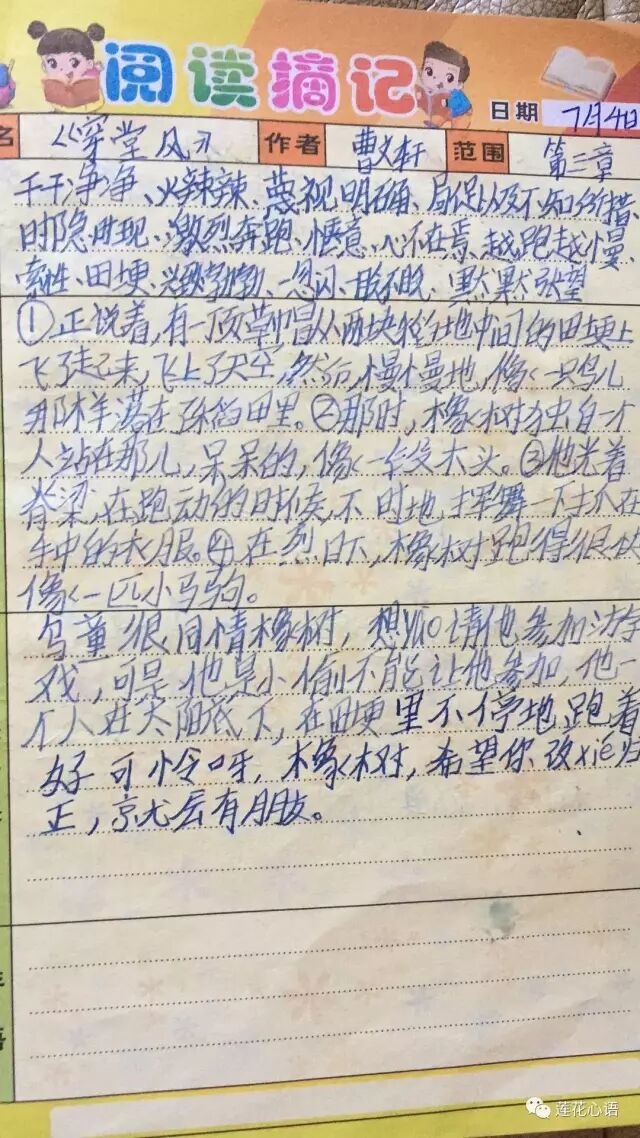 阅读摘记
日期 7月4日
名 《穿堂风》 作者 曹文轩 范围 第三章
干干净净、火辣辣、蔑视、明确、局促以及不知所措
时隐时现、激烈奔跑、惬意、心不在焉、越跑越慢、
索性、田埂、兴致勃勃、一忽闪、眼、默默张望
①正说着,有一顶草帽从两块稻地中间的田埂上
飞了起来,飞上了天空,然后,慢慢地,像一只鸟儿
那样落在了稻田里。②那时,橡树独自一个
人站在那儿,呆呆的,像一段木头。③他光着
脊梁,在跑动的时候,不时地挥舞一下抓在
手中的衣服。④在烈日下,橡树跑得很快
像一匹小马驹。
乌童很同情橡树,想yāo请他参加游
戏,可是他是小偷不能让他参加,他一
个人在太阳底下,在田埂里不停地跑着
好可怜呀,橡树,希望你改xié归
正,就会有朋友。
语
莲花心语